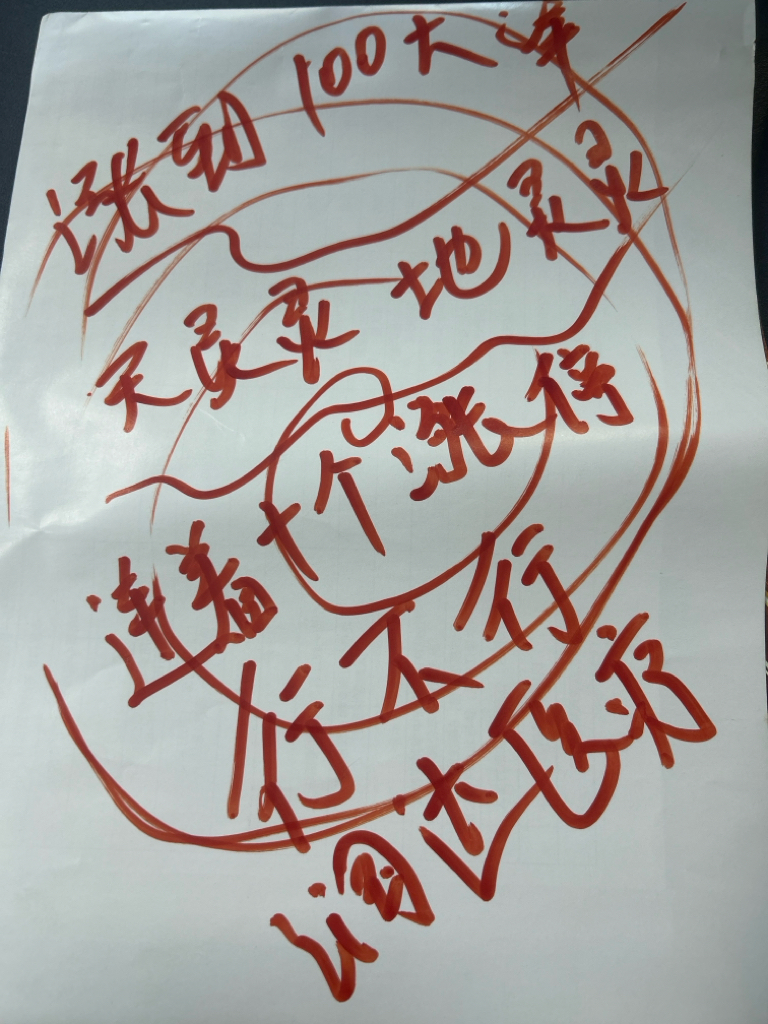 涨到100大洋
天灵灵地灵灵
连着十个涨停
行不行
润达医疗